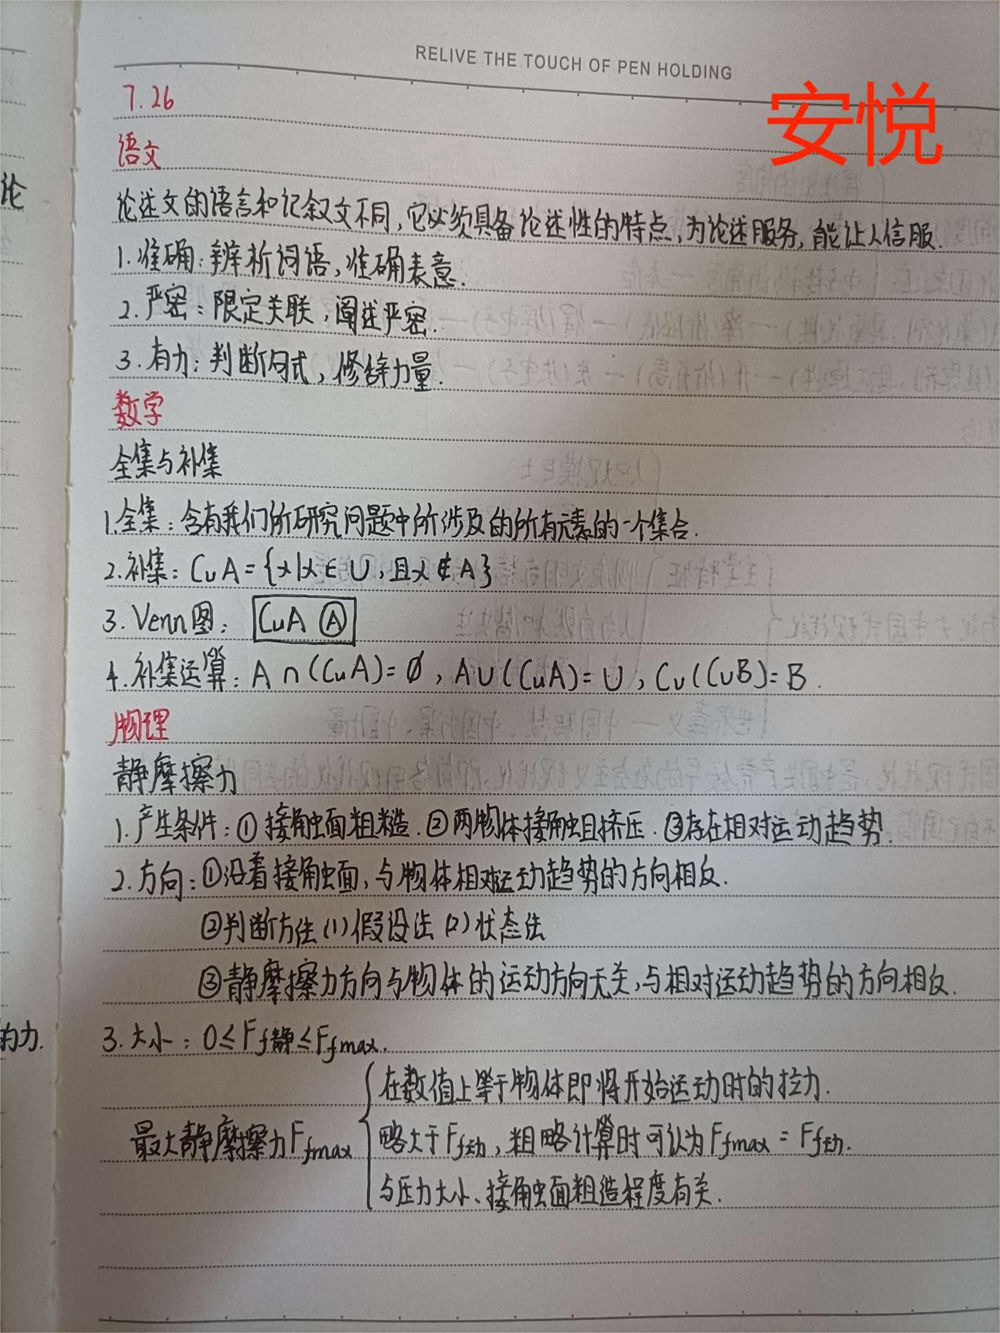 RELIVE THE TOUCH OF PEN HOLDING
7.26
安悦
语文
论述文的语言和记叙文不同,它必须具备论述性的特点,为论述服务,能让人信服.
论
1.准确:辨析词语,准确表意.
2.严密:限定关联,阐述严密.
3.有力:判断句式,修辞力量.
数学
全集与补集
1.全集:含有我们所研究问题中所涉及的所有元素的一个集合.
2.补集:CuA={x|x∈U,且x∉A}
3.Venn图: CuA A
4.补集运算:A∩(CuA)=∅,A∪(CuA)=U,Cu(CuB)=B.
物理
静摩擦力
1.产生条件:①接触面粗糙.②两物体接触且挤压.③存在相对运动趋势.
2.方向:①沿着接触面,与物体相对运动趋势的方向相反.
②判断方法(1)假设法(2)状态法
③静摩擦力方向与物体的运动方向无关,与相对运动趋势的方向相反.
的力.
3.大小:0≤Ff静≤Ffmax.
在数值上等于物体即将开始运动时的拉力.
最大静摩擦力Ffmax
略大于Ff动,粗略计算时可认为Ffmax=Ff动.
与压力大小、接触面粗造程度有关.